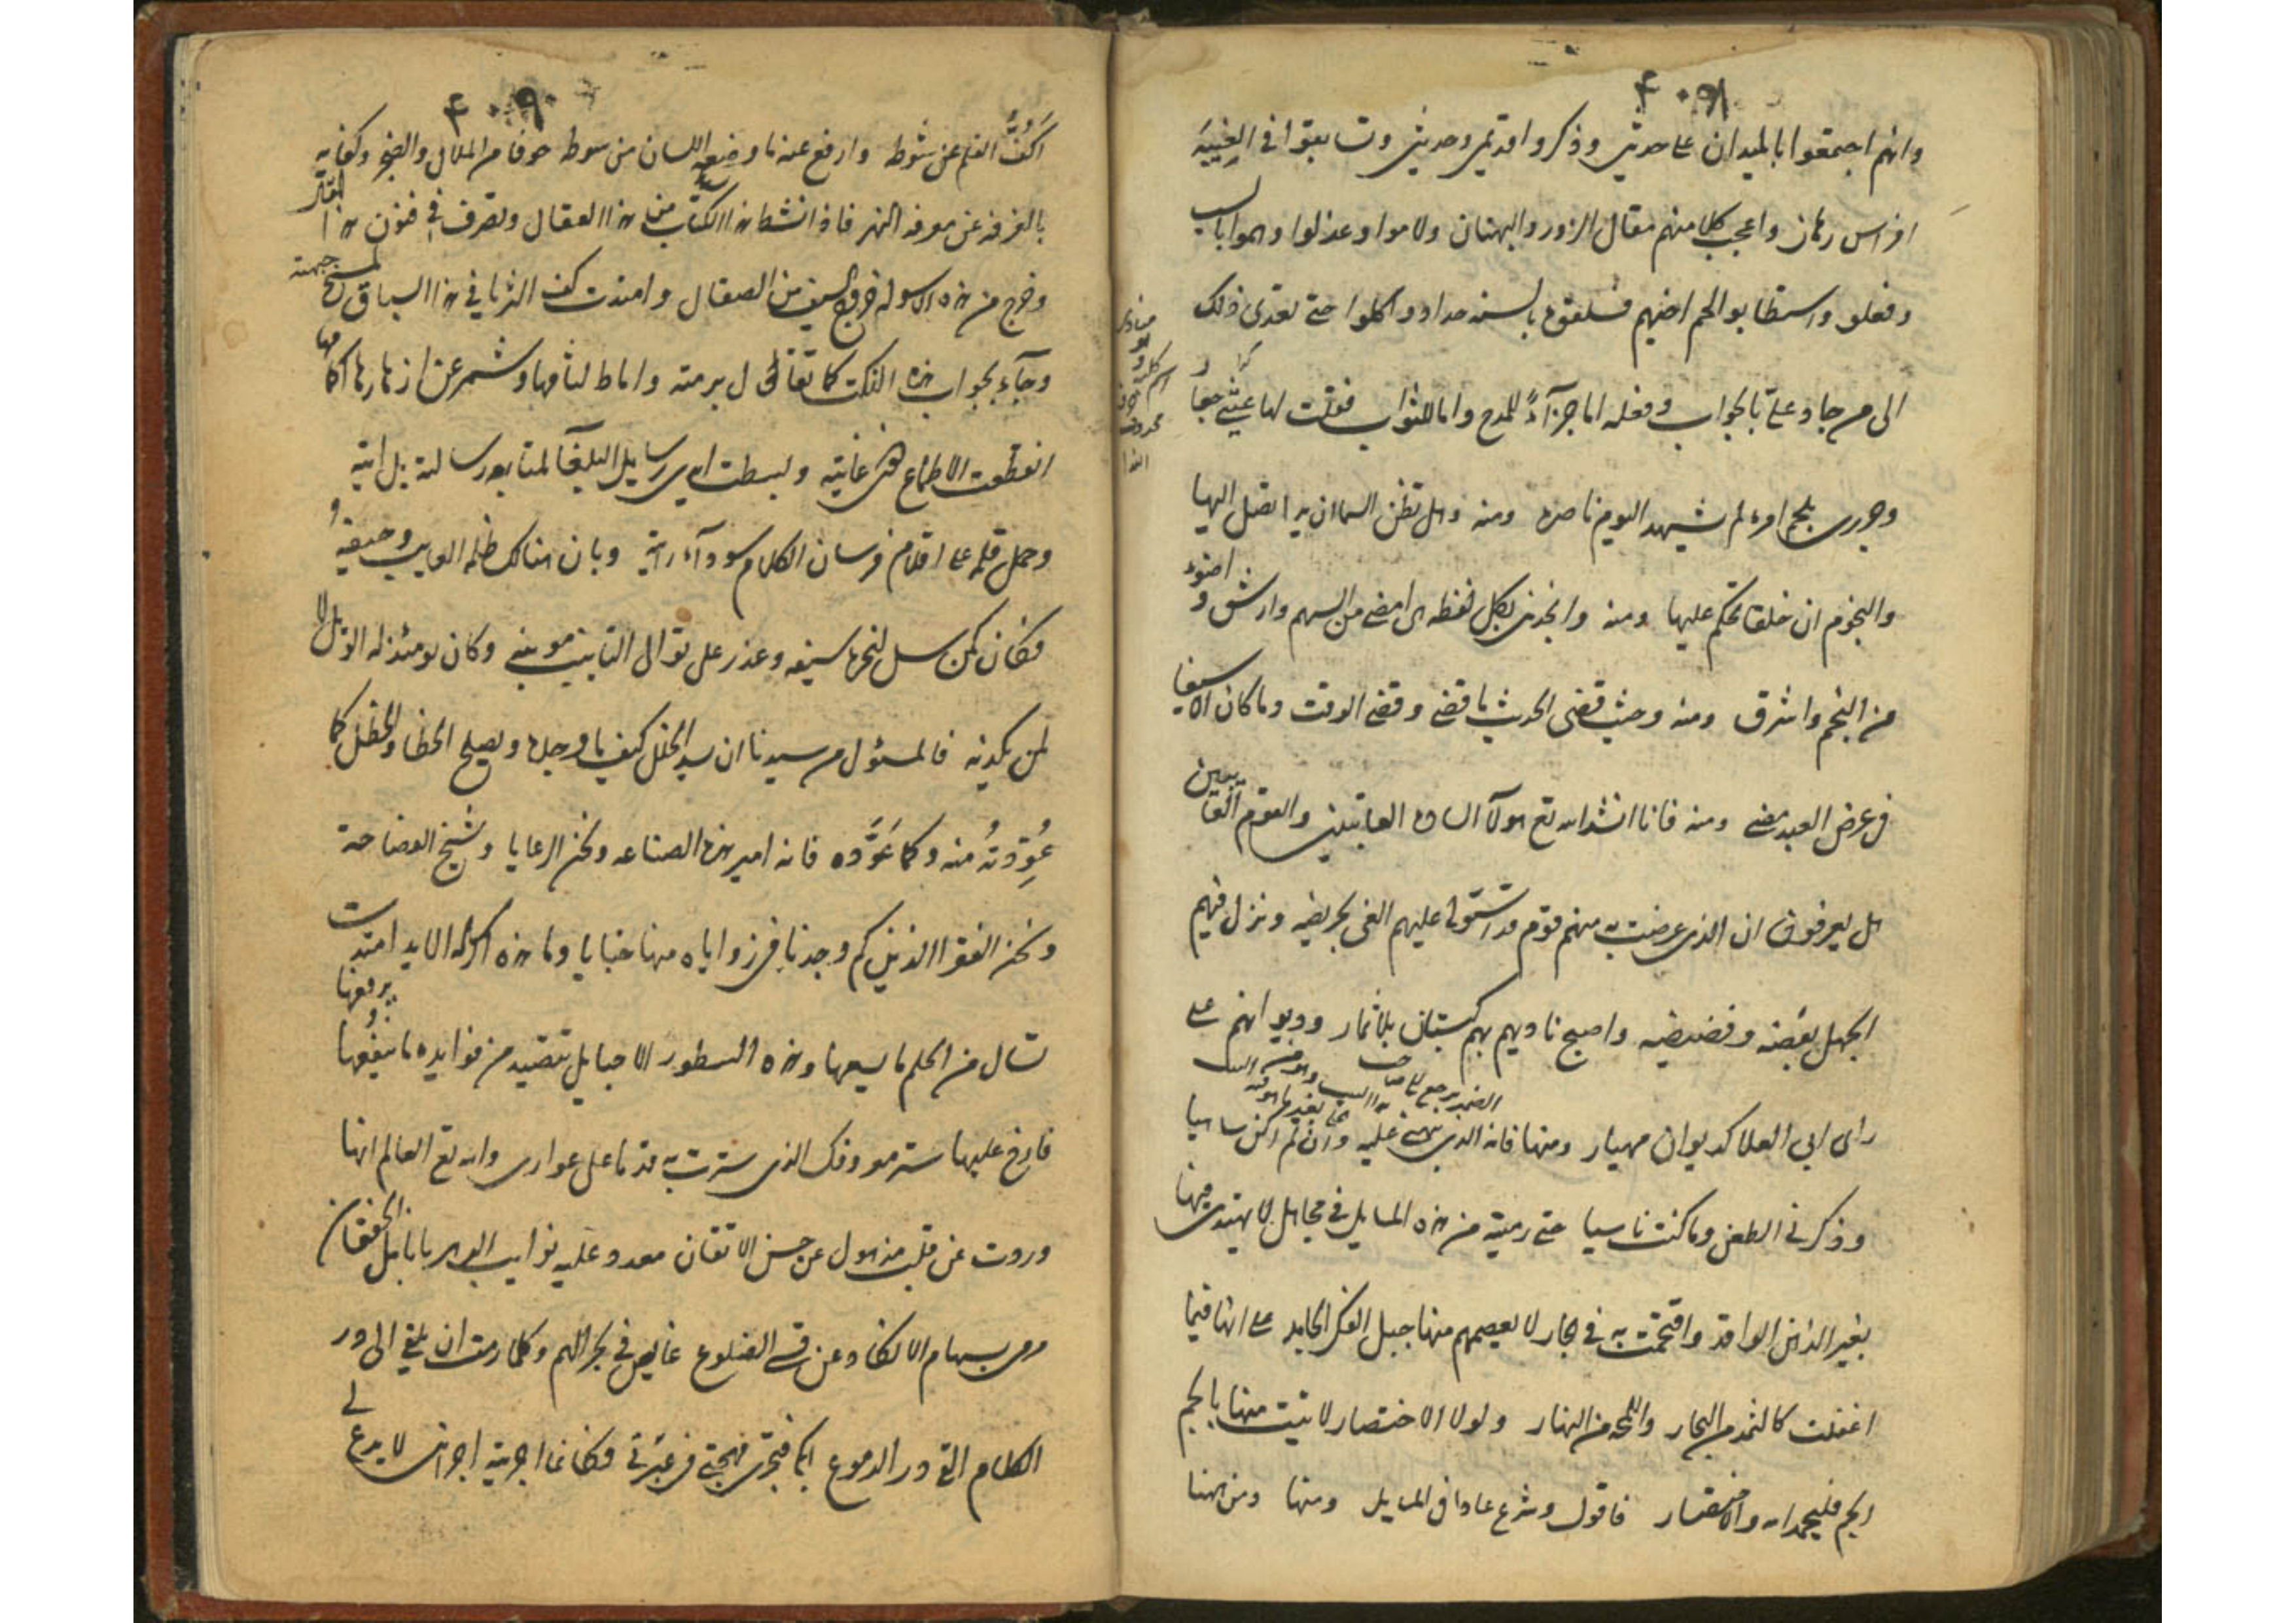 وانهم اجتمعوا بالميدان على حديثي وذكروا قديمي وحديثي وتسابقوا في الغيبة
افراس رهان واعجب كلا منهم مقال الزور والبهتان ولاموا وعذلوا وهموا بالسب
وفعلو واستطابو الحم اخيهم فسلقوه بالسنة حداد واكلوا حتى تعدى ذلك
الى من جاد على بالجواب وفعله اما جزآءً للمدح واما للثواب فقلت لها عيثي جعار
وجرري بلحم امرء لم يشهد اليوم ناصره ومنه وهل تظن السما ان يدا تصل اليها
والنجوم ان خلقا تحكم عليها ومنه وانجدني بكل لفظه هي امضى من السهم وارشق واضوء
من النجم واشرق ومنه وحيث قضى الحديث ما قضى وقضى الوقت وما كان الا سيفا
في عرض العبد مضى ومنه فانا انشد الله تع هولآ الساده الغائبين والقوم العايبين
هل يعرفون ان الذي عرضت به منهم قوم قد استولى عليهم الغي بجريضه ونزل فيهم
الجهل بقضه وقضيضه واصبح ناديهم بهم كبستان بلا ثمار وديوانهم على
راى ابي العلا كديوان مهيار ومنها فانه الذي نبهني عليه وان لم اكن ساهيا
وذكرني الطعن وما كنت ناسيا حتى رميته من هذه المسايل في مجاهل لا يهتدى فيها
بغير الذهن الواقد واقتحمت به في بحار لا يعصمهم منها جبل الفكر الجامد على انها فيما
اغفلت كالثمد من البحار واللمحه من النهار ولولا الاختصار لاتيت منها بالجم
الجم فليحمد الله والاختصار فاقول وشرع عادا في المسايل ومنها ومن ههنا
اَكُفُّ القلم عن شوطه وارفع عنه ما وضعه اللسان من سوطه خوفا من الملال والضجر وكفايه
بالغرفه عن معرفه النهر فاذا نشط هذا الكتاب من هذا العقال وتصرف في فنون هذا المقال
وخرج من هذه الاسوله خروج السيف من الصقال وامتدت كف الثريا في هذا السياق لمسح جبهته
وجآء بجواب هذه النكت كما تقال برمته واماط لثامها وشمر عن ازهارها اكمامها
انقطعت الاطماع دون غايته وبسطت ايدي رسايل البلغآ لمتابعه رسالته بل ايته
وحمل قلمه على اقلام فرسان الكلام سودآء رايته وبان هنالك ظلم العايب وحيفه
فكان كمن سل لنحره سيفه وعذر على توالى التانيب مونبي وكان يومئذ له الويل لا
لمن يكذبه فالمسئول من سيدنا ان يسد الخلل كيف ما وجده ويصلح الخطا والخطل كما
عُوِّدتُهُ منه وكما عَوَّده فانه امير هذه الصناعه ونحن الرعايا وشيخ الفصاحة
ونحن الفقرا الذين كم وجدنا في زواياه منها خبايا وما هذه الا الايد امتدت
تسال من الحلم ما يسعها وهذه السطور الا حبايل تتصيد من فوايده ما ينفعها ويرفعها
فارخ عليها ستر معروفك الذي سترت به قدما على عواري والله تع العالم انها
وردت عن قلب مذهول عن حسن الاتقان معدود عليه نوايب الدهر بانامل الخفقان
رمى بسهام الانكاد عن قسى الضلوع غايص في بحر الهم وكلما رمت ان يلقي الى در
الكلام القى در الدموع انكا فتجرى مهجتى في عبرتى وكان ما اجريته اجراني لا يدع لي